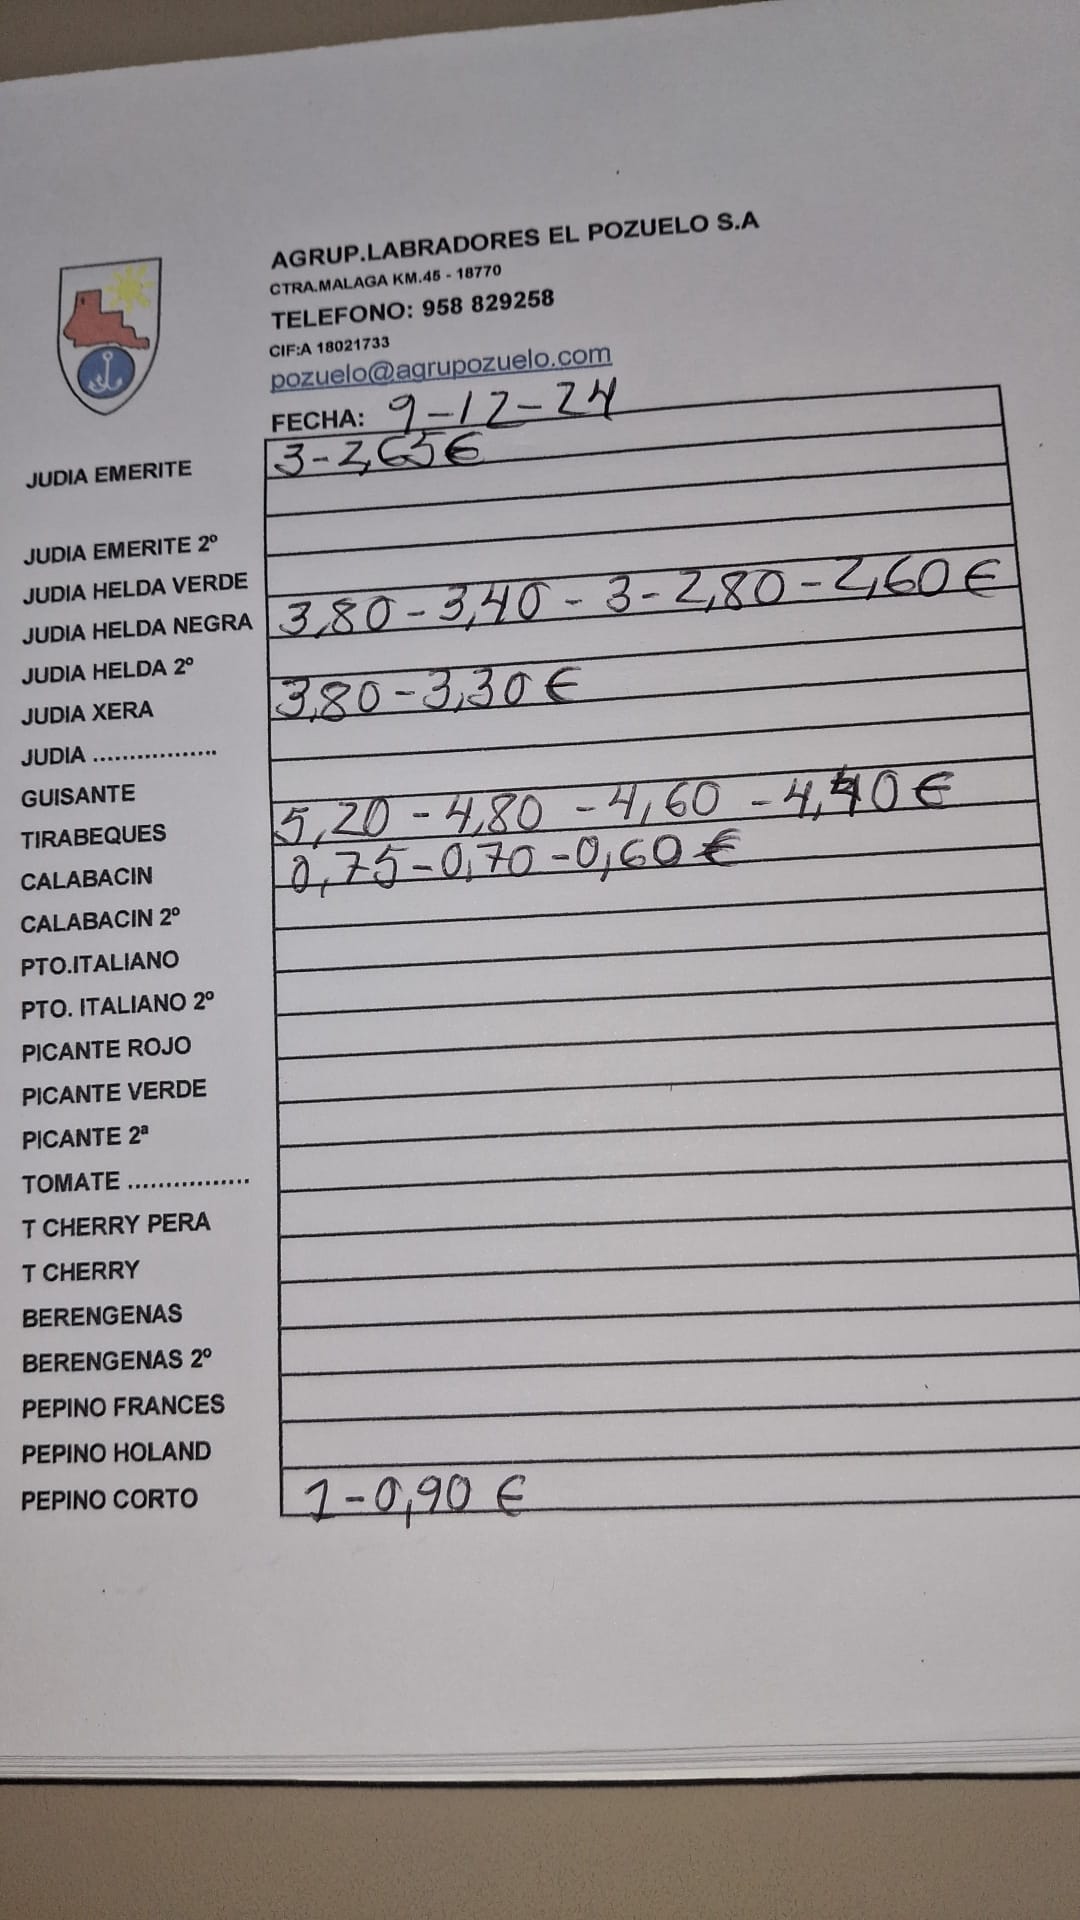 AGRUP.LABRADORES EL POZUELO S.A
CTRA.MALAGA KM.45 - 18770
TELEFONO: 958 829258
CIF:A 18021733
pozuelo@agrupozuelo.com
FECHA: 9-12-24
JUDIA EMERITE 3-2,65€
JUDIA EMERITE 2º
JUDIA HELDA VERDE
JUDIA HELDA NEGRA 3,80-3,40-3-2,80-2,60€
JUDIA HELDA 2º
JUDIA XERA 3,80-3,30€
JUDIA .................
GUISANTE
TIRABEQUES 5,20-4,80-4,60-4,40€
CALABACIN 0,75-0,70-0,60€
CALABACIN 2º
PTO.ITALIANO
PTO. ITALIANO 2º
PICANTE ROJO
PICANTE VERDE
PICANTE 2ª
TOMATE ................
T CHERRY PERA
T CHERRY
BERENGENAS
BERENGENAS 2º
PEPINO FRANCES
PEPINO HOLAND
PEPINO CORTO 1-0,90 €